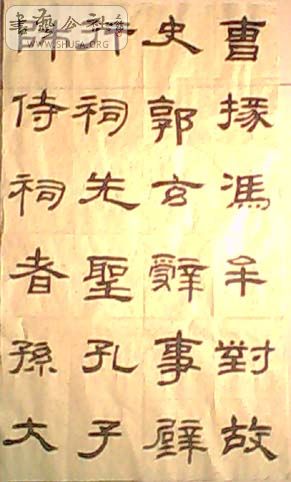 曹掾馮牟對故
史郭玄辭事辟
行祠先聖孔子
師侍祠者孫大
WWW.SHUFA.ORG